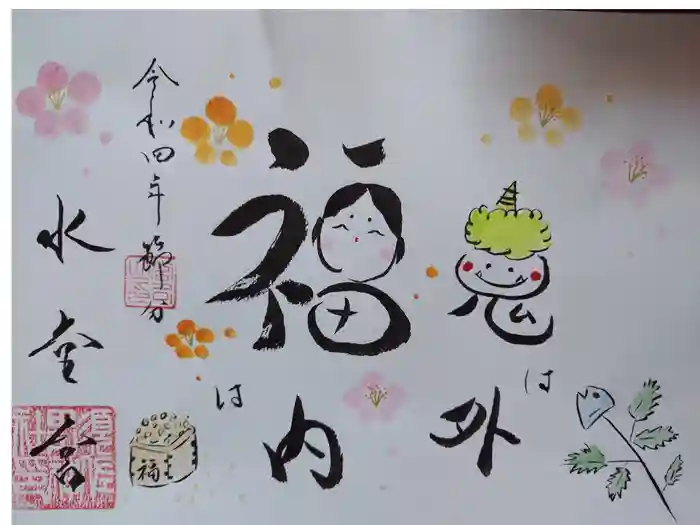 鬼は外
福は内
福豆
令和四年節分
水堂舎